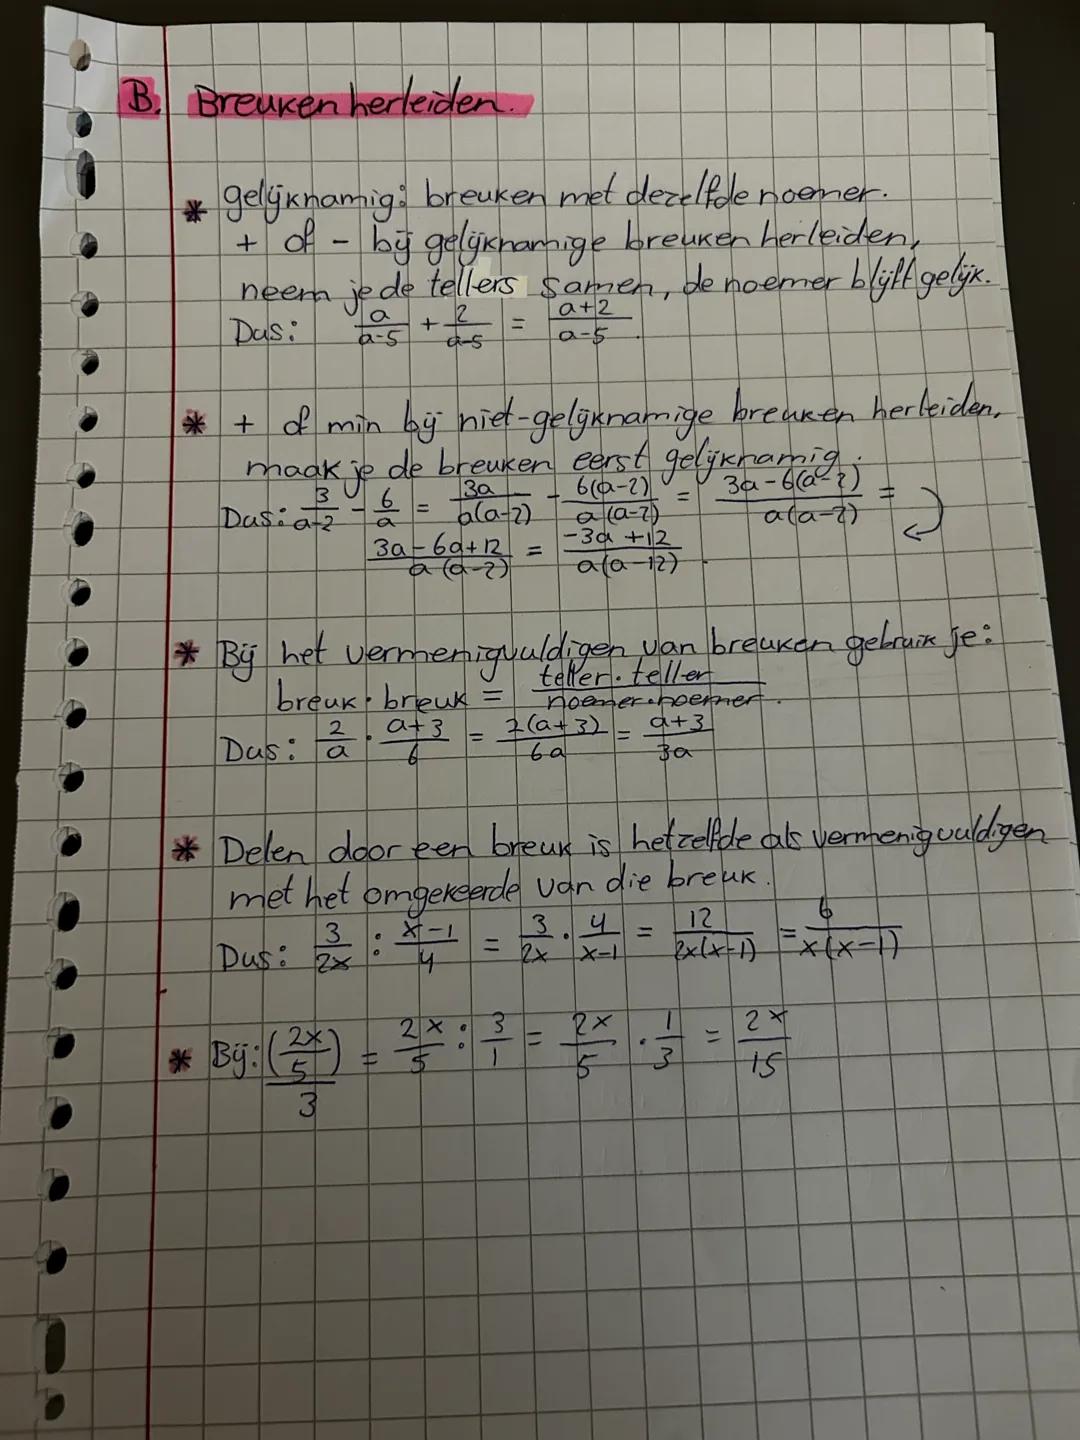 B. Breuken herleiden.
* gelijknamig: breuken met dezelfde noemer.
+ of - bij gelijknamige breuken herleiden,
neem je de tellers samen, de noemer blijft gelijk.
Dus: a/(a-5) + 2/(a-5) = (a+2)/(a-5).
* + of min bij niet-gelijknamige breuken herleiden,
maak je de breuken eerst gelijknamig.
Dus: 3/(a-2) - 6/a = 3a/(a(a-2)) - 6(a-2)/(a(a-2)) = (3a-6(a-2))/(a(a-2)) =
(3a-6a+12)/(a(a-2)) = (-3a+12)/(a(a-12)).
* Bij het vermenigvuldigen van breuken gebruik je:
breuk · breuk = (teller · teller)/(noemer · noemer).
Dus: 2/a · (a+3)/6 = 2(a+3)/6a = (a+3)/3a
* Delen door een breuk is hetzelfde als vermenigvuldigen
met het omgekeerde van die breuk.
Dus: 3/2x : (x-1)/4 = 3/2x · 4/(x-1) = 12/(2x(x-1)) = 6/(x(x-1))
* Bij: (2x/5)/3 = 2x/5 : 3/1 = 2x/5 · 1/3 = 2x/15